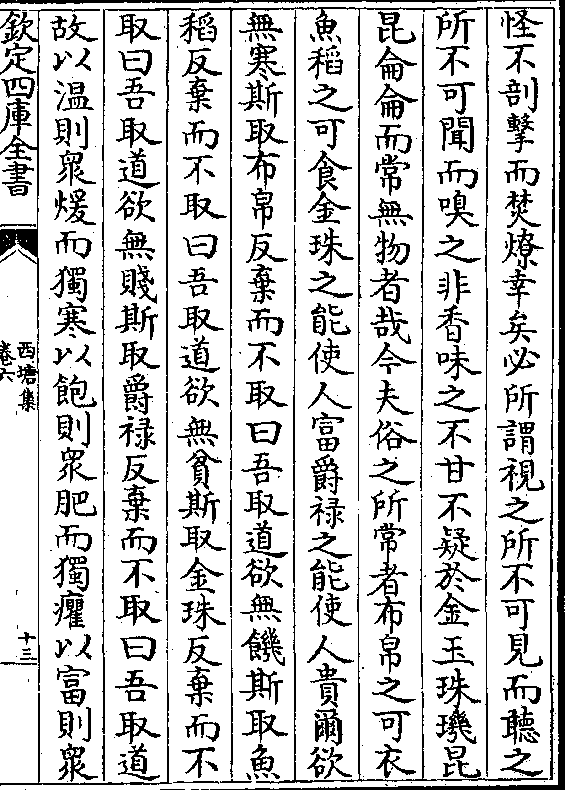 怪不剖擊而焚燎幸矣必所謂視之所不可見而聽之
所不可聞而嗅之非香味之不甘不疑於金玉珠璣昆
昆侖侖而常無物者哉今夫俗之所常者布帛之可衣
魚稻之可食金珠之能使人富爵禄之能使人貴爾欲
無寒斯取布帛反棄而不取曰吾取道欲無饑斯取魚
稻反棄而不取曰吾取道欲無貧斯取金珠反棄而不
取曰吾取道欲無賤斯取爵禄反棄而不取曰吾取道
故以温則衆煖而獨寒以飽則衆肥而獨癯以富則衆
欽定四庫全書
西塘集
卷六
十三